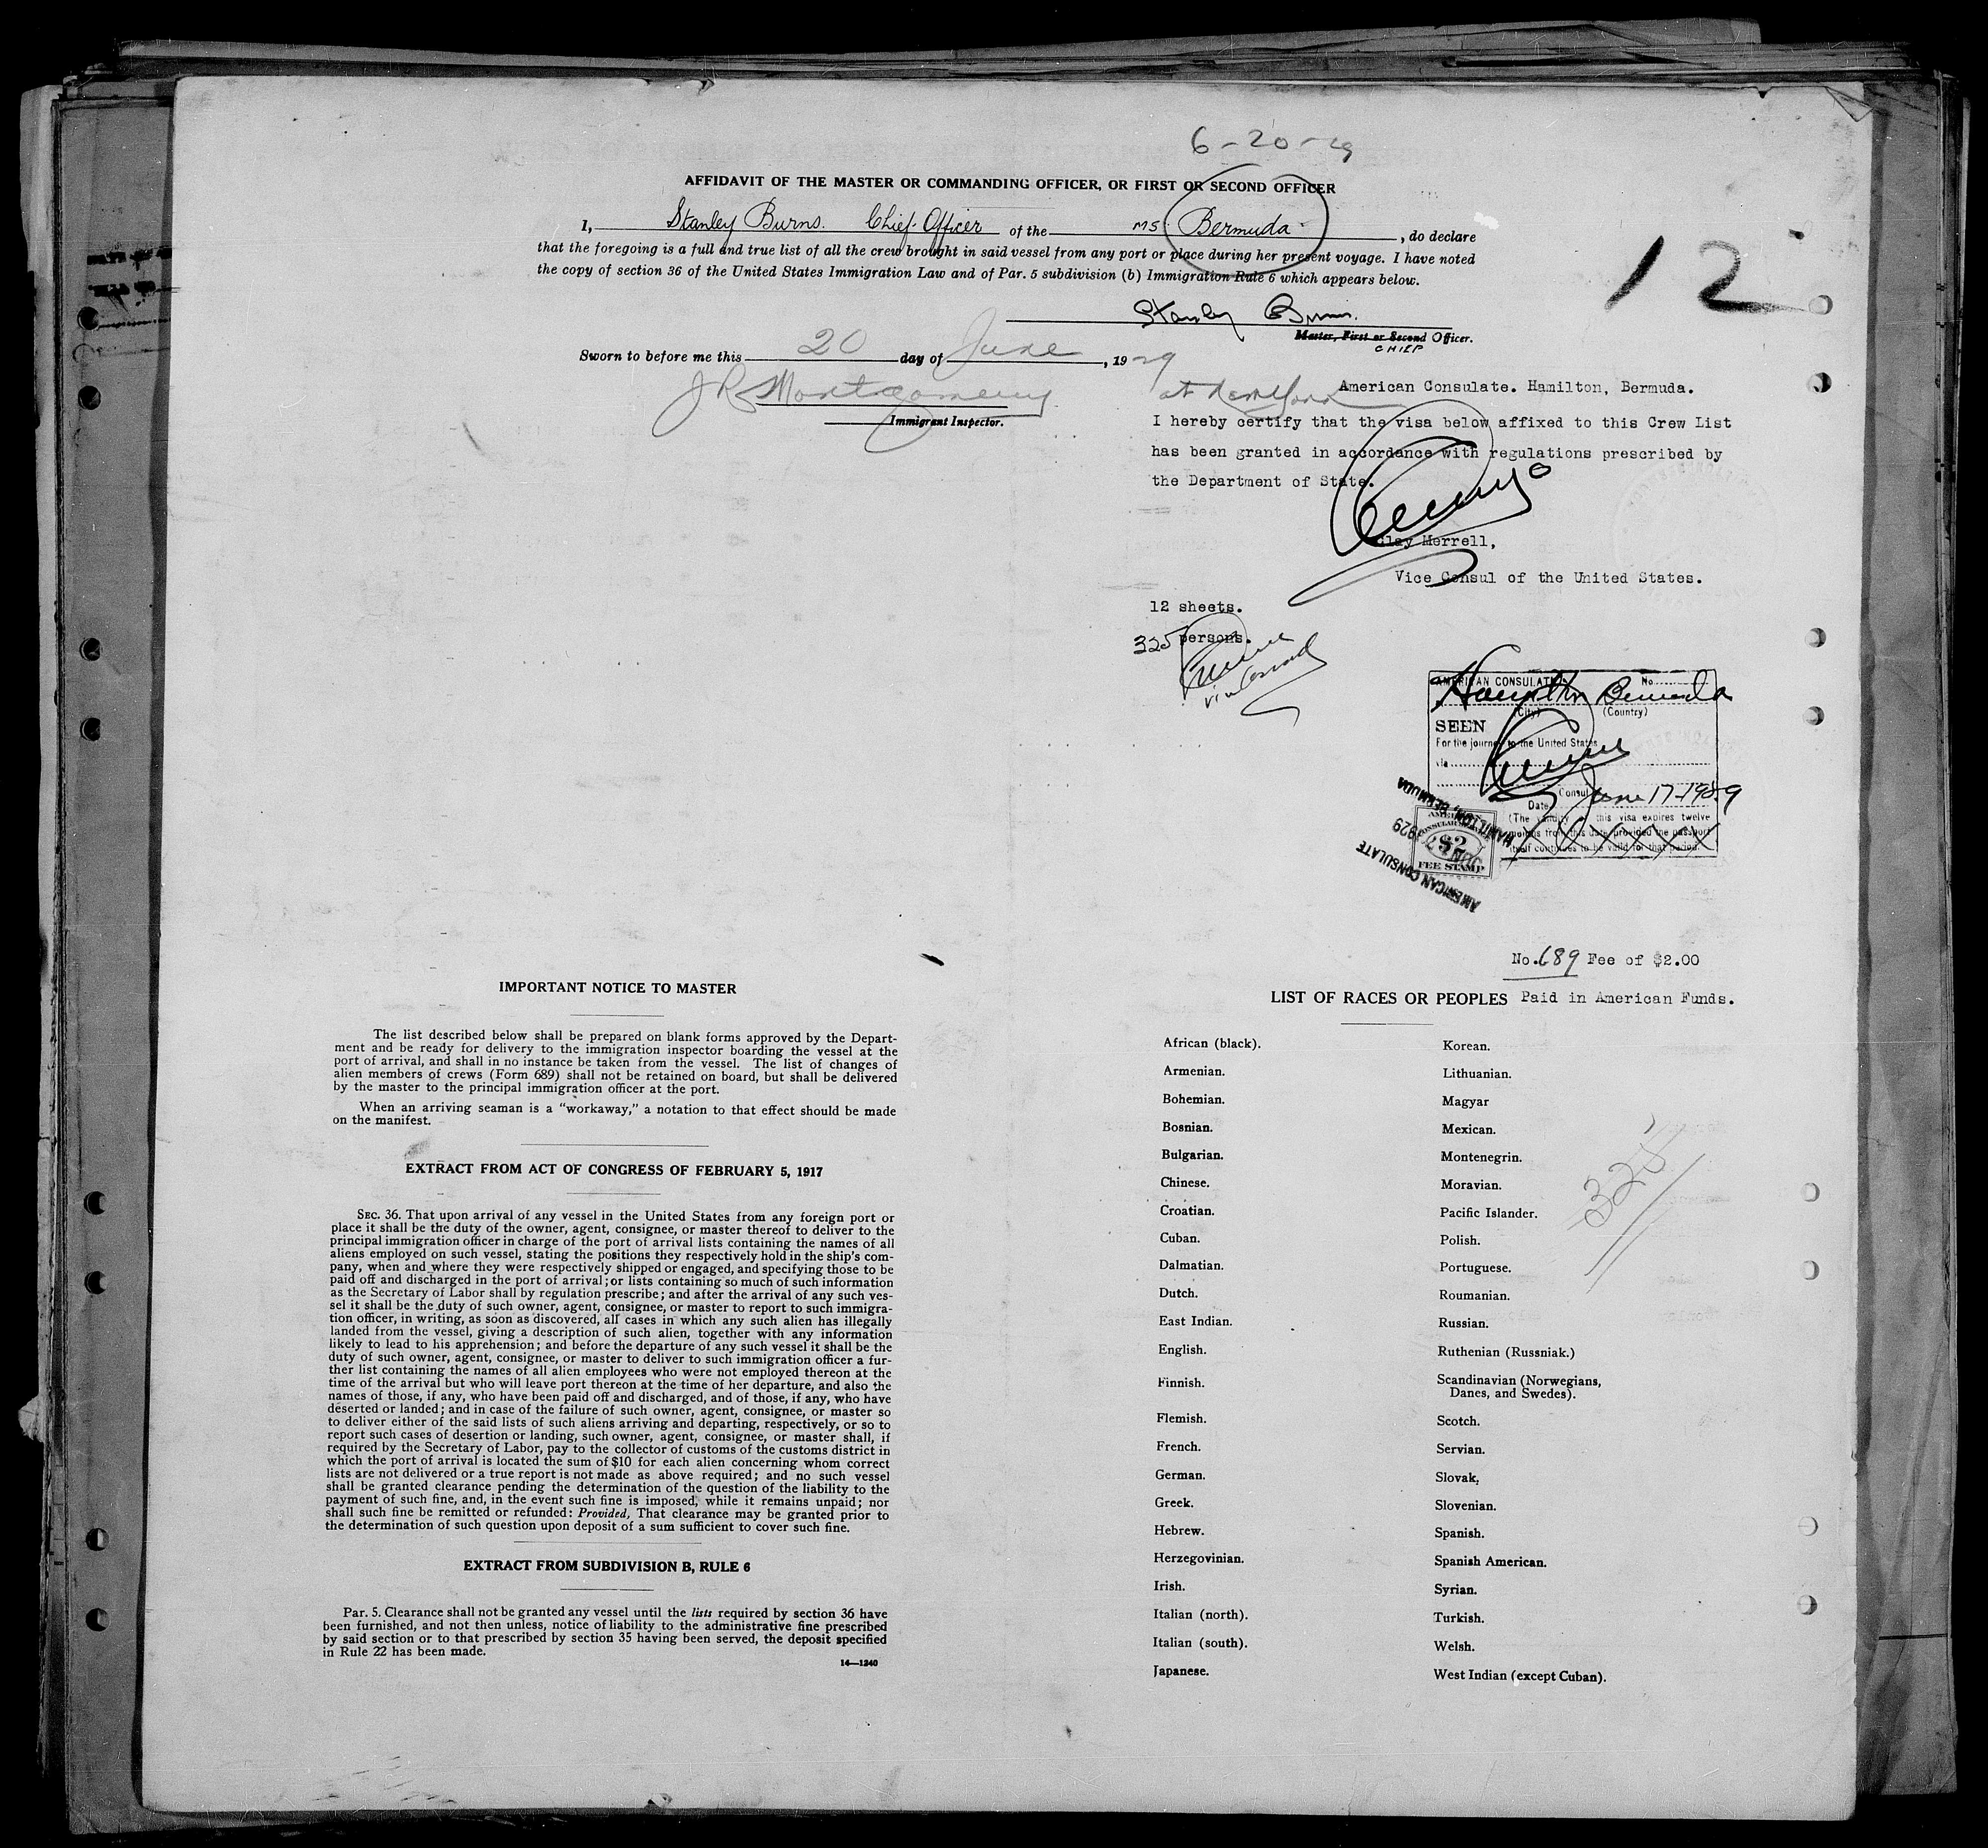 6-20-29
AFFIDAVIT OF THE MASTER OR COMMANDING OFFICER, OR FIRST OR SECOND OFFICER
I, Stanley Burns. Chief Officer of the MS. Bermuda, do declare
that the foregoing is a full and true list of all the crew brought in said vessel from any port or place during her present voyage. I have noted
the copy of section 36 of the United States Immigration Law and of Par. 5 subdivision (b) Immigration Rule 6 which appears below.
12
Stanley Burns.
Master, First or Second Officer.
CHIEF
Sworn to before me this 20 day of June, 1929
J R Montgomery
Immigrant Inspector.
at New York
American Consulate. Hamilton, Bermuda.
I hereby certify that the visa below affixed to this Crew List
has been granted in accordance with regulations prescribed by
the Department of State.
Clay Merrell,
Vice Consul of the United States.
12 sheets.
325 persons.
Vice Consul
AMERICAN CONSULATE No.
Hamilton Bermuda
(City) (Country)
SEEN
For the journey to the United States
via
Consul
Date June 17-1929
(The validity of this visa expires twelve
months from this date provided the passport
itself continues to be valid for that period.
AMERICAN CONSULAR SERVICE
$2
FEE STAMP
AMERICAN CONSULATE
JUN 17 1929
HAMILTON, BERMUDA
No. 689 Fee of $2.00
Paid in American Funds.
IMPORTANT NOTICE TO MASTER
The list described below shall be prepared on blank forms approved by the Depart-
ment and be ready for delivery to the immigration inspector boarding the vessel at the
port of arrival, and shall in no instance be taken from the vessel. The list of changes of
alien members of crews (Form 689) shall not be retained on board, but shall be delivered
by the master to the principal immigration officer at the port.
When an arriving seaman is a "workaway," a notation to that effect should be made
on the manifest.
EXTRACT FROM ACT OF CONGRESS OF FEBRUARY 5, 1917
SEC. 36. That upon arrival of any vessel in the United States from any foreign port or
place it shall be the duty of the owner, agent, consignee, or master thereof to deliver to the
principal immigration officer in charge of the port of arrival lists containing the names of all
aliens employed on such vessel, stating the positions they respectively hold in the ship's com-
pany, when and where they were respectively shipped or engaged, and specifying those to be
paid off and discharged in the port of arrival; or lists containing so much of such information
as the Secretary of Labor shall by regulation prescribe; and after the arrival of any such ves-
sel it shall be the duty of such owner, agent, consignee, or master to report to such immigra-
tion officer, in writing, as soon as discovered, all cases in which any such alien has illegally
landed from the vessel, giving a description of such alien, together with any information
likely to lead to his apprehension; and before the departure of any such vessel it shall be the
duty of such owner, agent, consignee, or master to deliver to such immigration officer a fur-
ther list containing the names of all alien employees who were not employed thereon at the
time of the arrival but who will leave port thereon at the time of her departure, and also the
names of those, if any, who have been paid off and discharged, and of those, if any, who have
deserted or landed; and in case of the failure of such owner, agent, consignee, or master so
to deliver either of the said lists of such aliens arriving and departing, respectively, or so to
report such cases of desertion or landing, such owner, agent, consignee, or master shall, if
required by the Secretary of Labor, pay to the collector of customs of the customs district in
which the port of arrival is located the sum of $10 for each alien concerning whom correct
lists are not delivered or a true report is not made as above required; and no such vessel
shall be granted clearance pending the determination of the question of the liability to the
payment of such fine, and, in the event such fine is imposed, while it remains unpaid; nor
shall such fine be remitted or refunded: Provided, That clearance may be granted prior to
the determination of such question upon deposit of a sum sufficient to cover such fine.
EXTRACT FROM SUBDIVISION B, RULE 6
Par. 5. Clearance shall not be granted any vessel until the lists required by section 36 have
been furnished, and not then unless, notice of liability to the administrative fine prescribed
by said section or to that prescribed by section 35 having been served, the deposit specified
in Rule 22 has been made.
14—1240
LIST OF RACES OR PEOPLES
African (black).
Armenian.
Bohemian.
Bosnian.
Bulgarian.
Chinese.
Croatian.
Cuban.
Dalmatian.
Dutch.
East Indian.
English.
Finnish.
Flemish.
French.
German.
Greek.
Hebrew.
Herzegovinian.
Irish.
Italian (north).
Italian (south).
Japanese.
Korean.
Lithuanian.
Magyar
Mexican.
Montenegrin.
Moravian.
Pacific Islander.
Polish.
Portuguese.
Roumanian.
Russian.
Ruthenian (Russniak.)
Scandinavian (Norwegians,
Danes, and Swedes).
Scotch.
Servian.
Slovak,
Slovenian.
Spanish.
Spanish American.
Syrian.
Turkish.
Welsh.
West Indian (except Cuban).
325